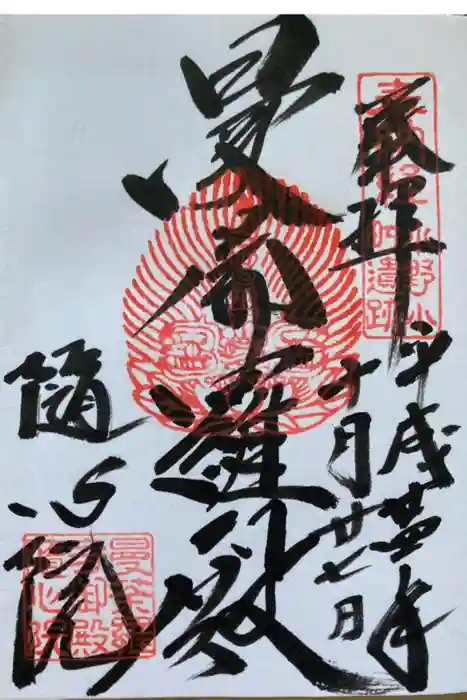 奉拝
小野小
町遺跡
平成
年
十月廿七日
曼荼羅殿
隨心院
曼荼羅
寺御殿
隨心院